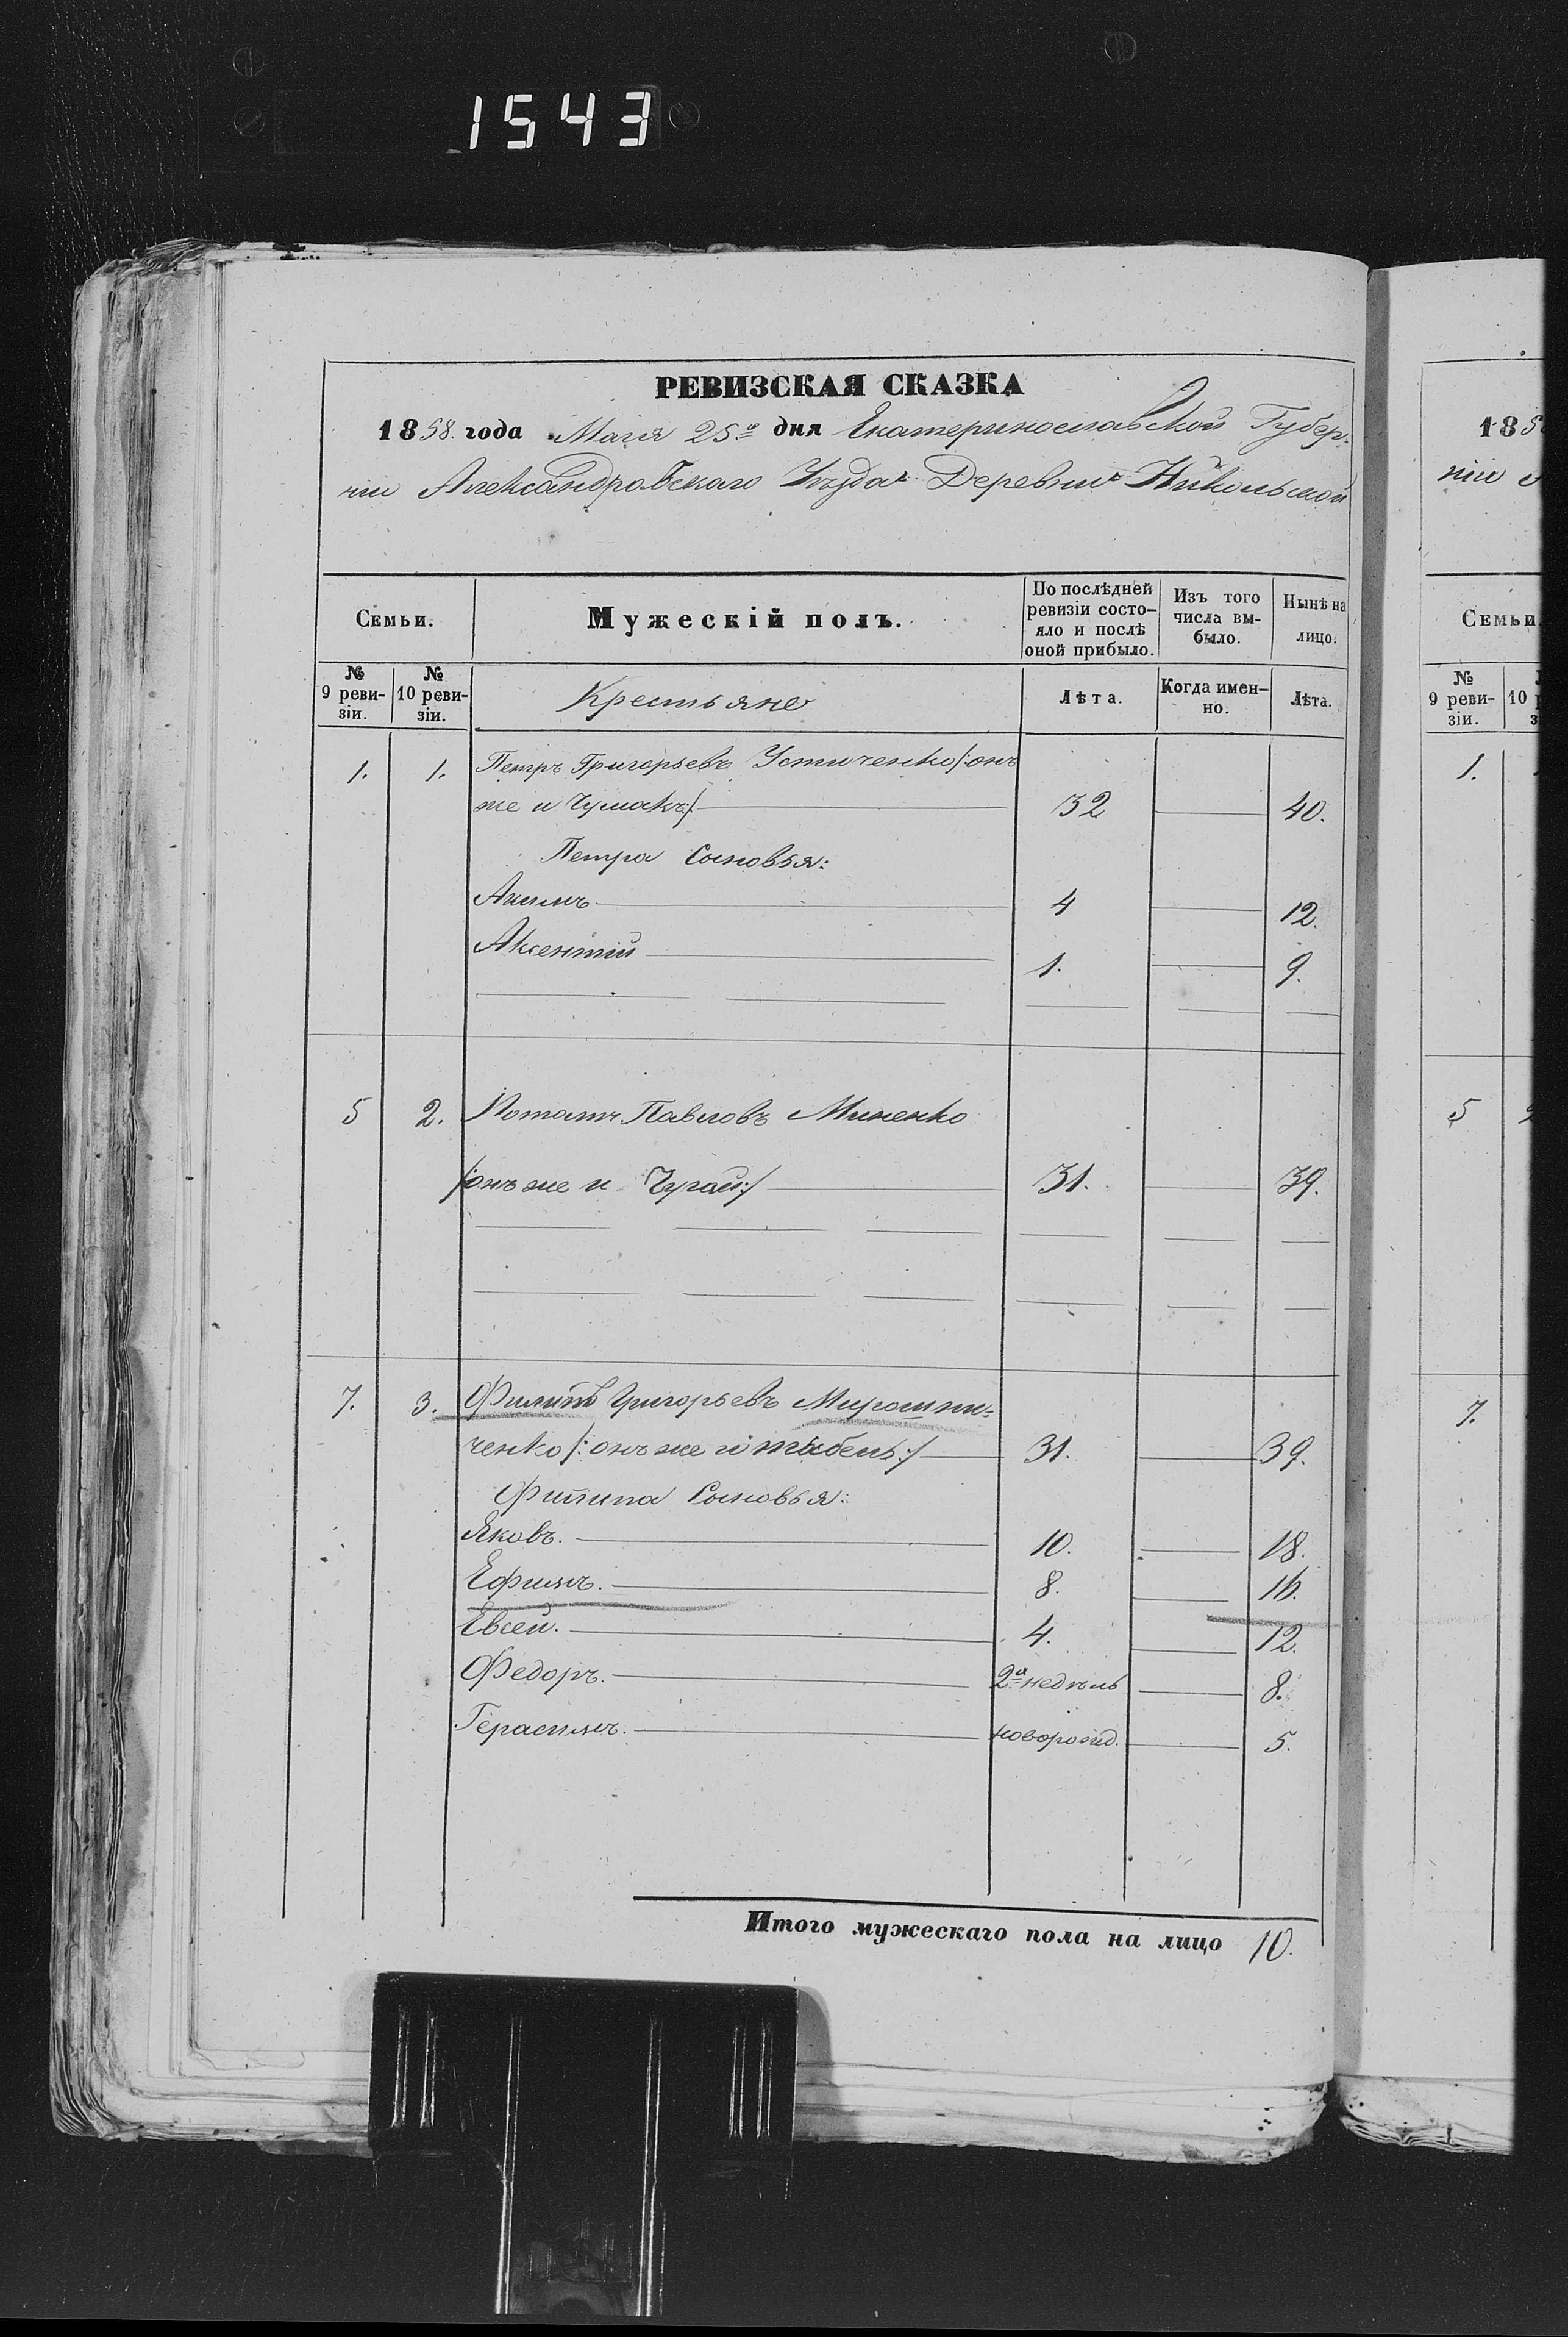 1543
РЕВИЗСКАЯ СКАЗКА
1858. года Маія 25го дня Екатеринославской Губер-
ніи Александровскаго Уѣзда Деревни Никольской
Семьи.
Мужескій полъ.
По послѣдней
ревизіи состо-
яло и послѣ
оной прибыло.
Изъ того
числа вы-
было.
Нынѣ на
лицо.
№
9 реви-
зіи.
№
10 реви-
зіи.
Крестьяне
Лѣта.
Когда имен-
но.
Лѣта.
1. 1. Петръ Григорьевъ Устиченко /:онъ
же и Чумакъ:/ 32 40.
Петра Сыновья:
Акимъ 4 12.
Аксентій 1. 9.
5 2. Потапъ Павловъ Миненко
/:онъ же и Чугай:/ 31. 39.
7. 3. Филипъ Григорьевъ Мирошни=
ченко /:онъ же и 31. 39.
Филипа Сыновья:
Яковъ. 10. 18.
Ефимъ. 8. 16.
Евсей. 4. 12.
Федоръ. 2х недѣль 8.
Герасимъ. новорожд. 5.
Итого мужескаго пола на лицо 10.
185
ніи А
Семьи.
№
9 реви-
зіи.
10
1.
5
7.